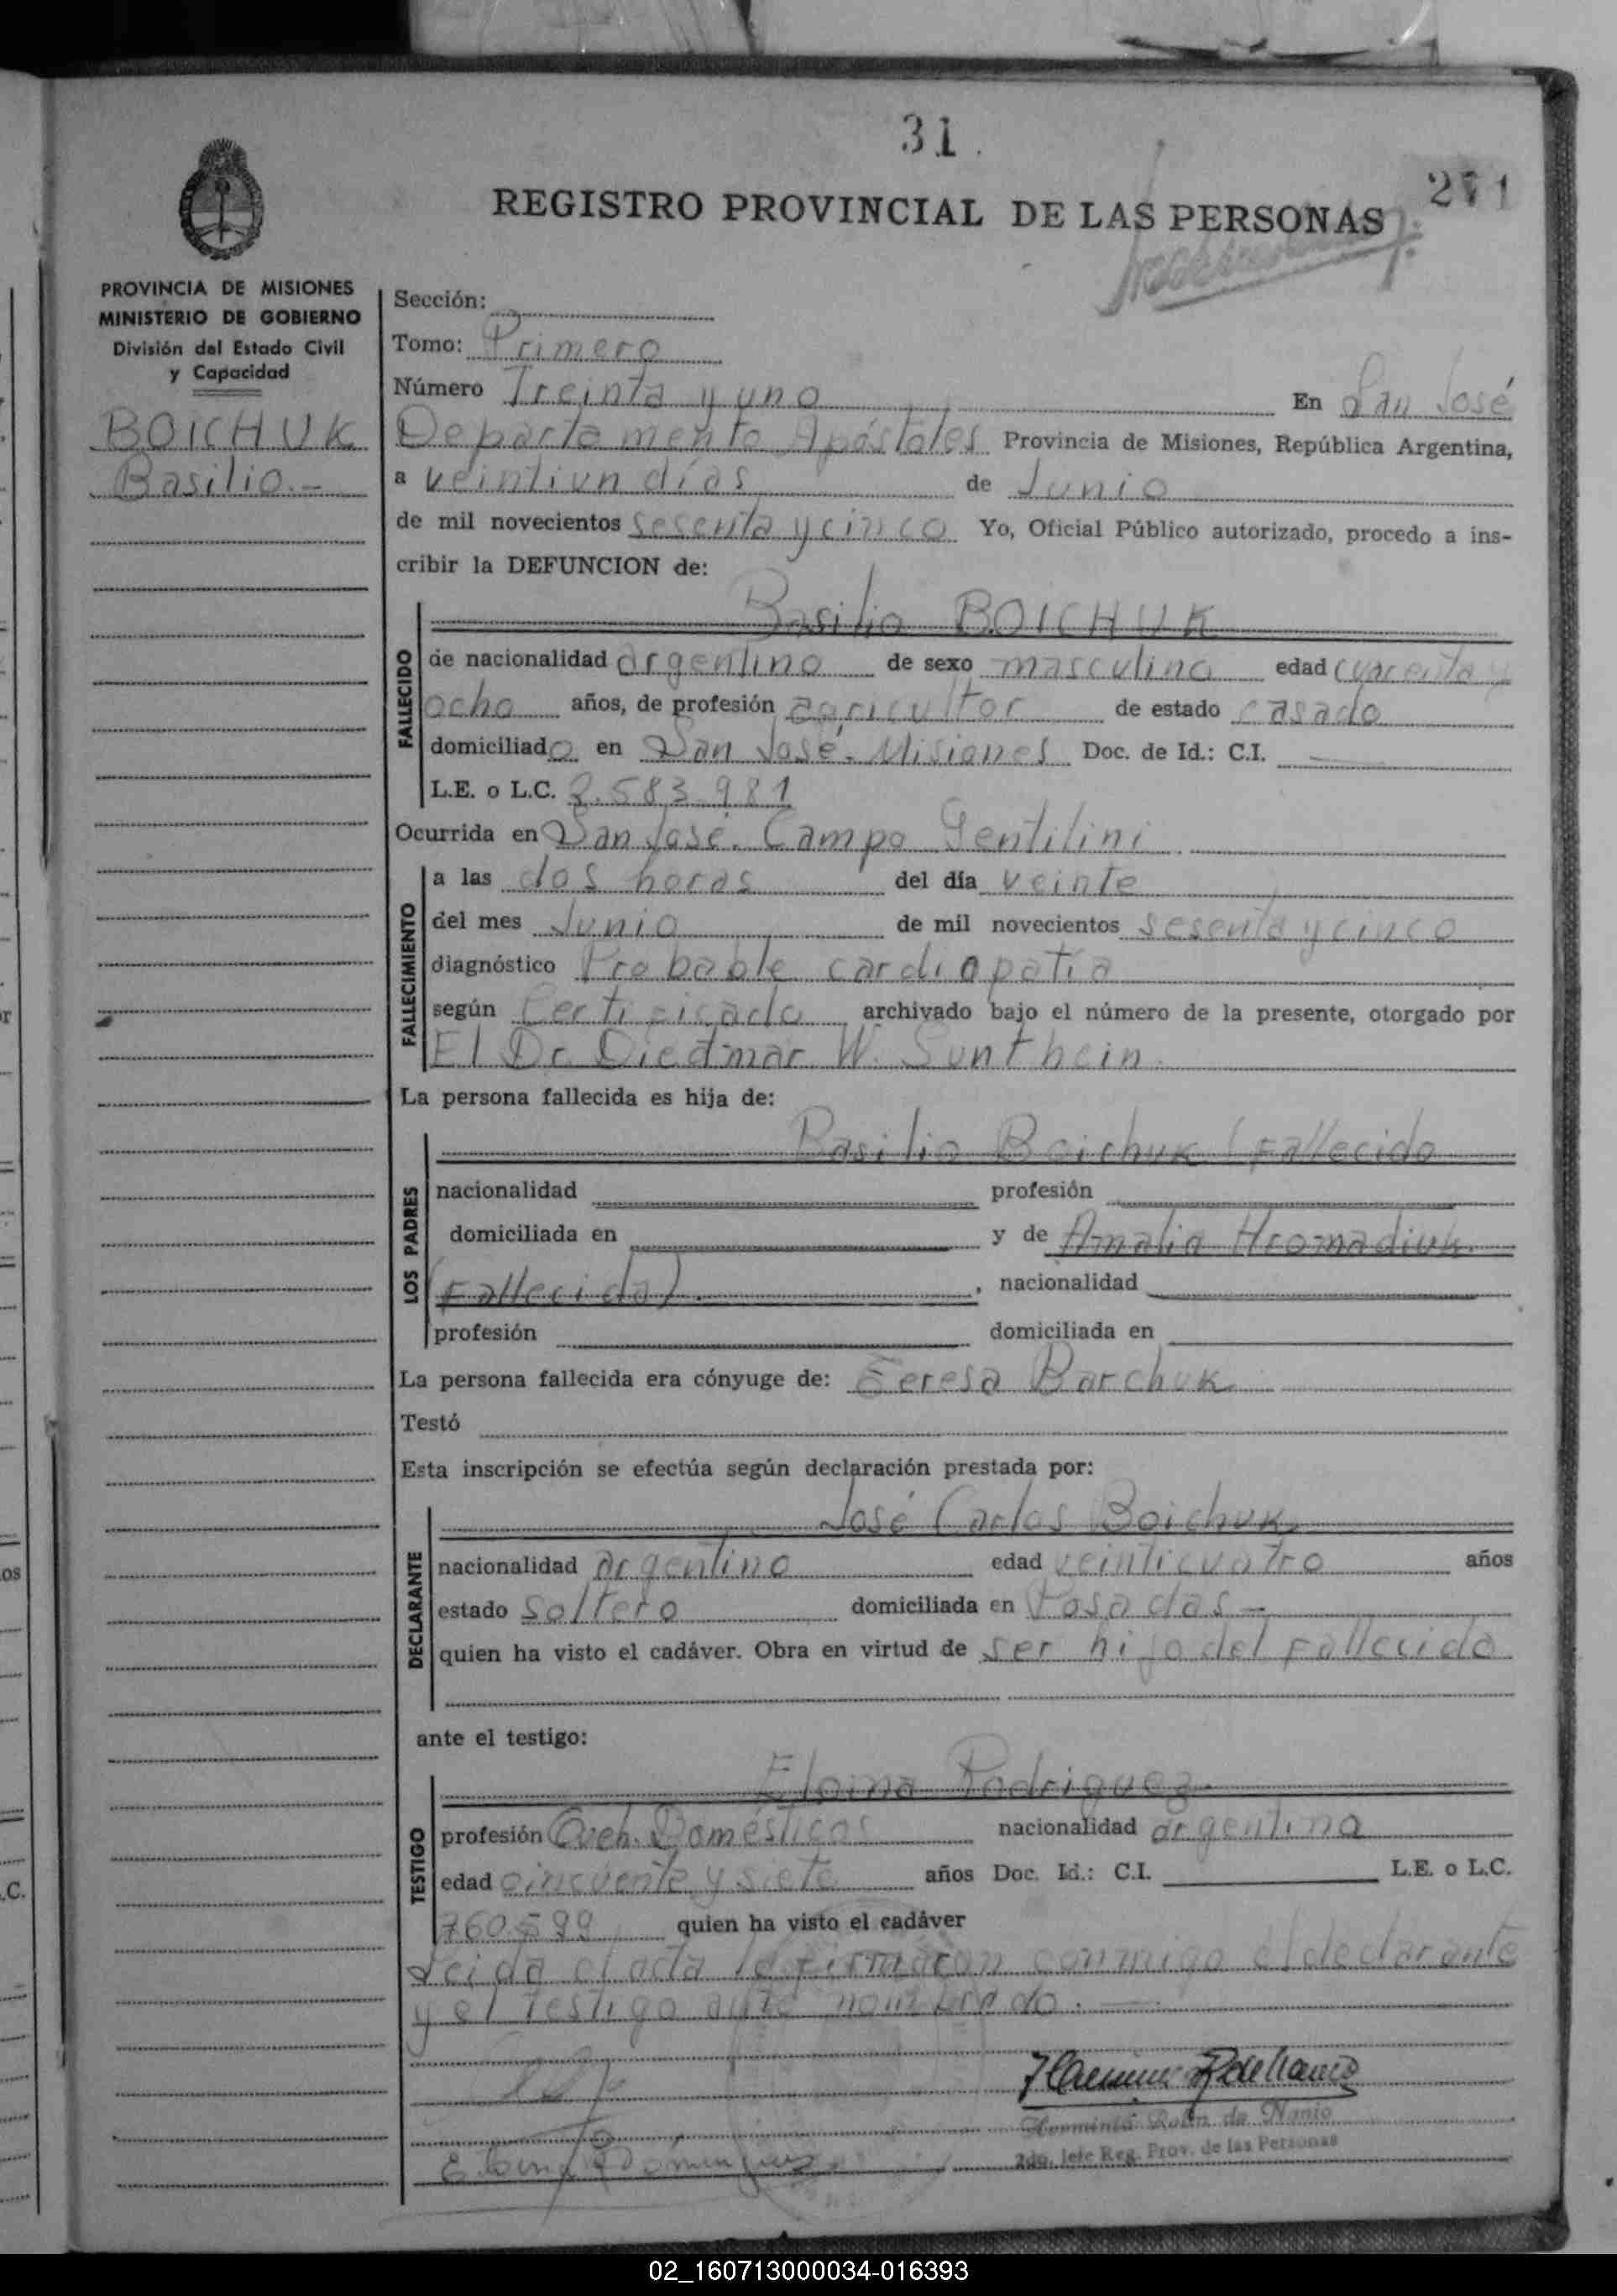 31.
271
REGISTRO PROVINCIAL DE LAS PERSONAS
PROVINCIA DE MISIONES
MINISTERIO DE GOBIERNO
División del Estado Civil
y Capacidad
BOICHUK
Basilio.-
Sección:
Tomo: Primero
Número Treinta y uno En San José
Departamento Apóstoles Provincia de Misiones, República Argentina,
a veintiun días de Junio
de mil novecientos sesenta y cinco Yo, Oficial Público autorizado, procedo a ins-
cribir la DEFUNCION de:
Basilio BOICHUK
FALLECIDO
de nacionalidad argentino de sexo masculino edad cuarenta y
ocho años, de profesión agricultor de estado casado
domiciliado en San José. Misiones Doc. de Id.: C.I.
L.E. o L.C. 2.583.981
Ocurrida en San José. Campo Gentilini
FALLECIMIENTO
a las dos horas del día veinte
del mes Junio de mil novecientos sesenta y cinco
diagnóstico Probable cardiopatía
según Certificado archivado bajo el número de la presente, otorgado por
El Dr. Diedmar W. Sunthein.
La persona fallecida es hija de:
LOS PADRES
Basilio Boichuk (Fallecido
nacionalidad profesión
domiciliada en y de Amalia Hromadiuk
(Fallecida). , nacionalidad
profesión domiciliada en
La persona fallecida era cónyuge de: Teresa Barchuk
Testó
Esta inscripción se efectúa según declaración prestada por:
DECLARANTE
José Carlos Boichuk
nacionalidad argentino edad veinticuatro años
estado soltero domiciliada en Posadas-
quien ha visto el cadáver. Obra en virtud de ser hijo del fallecido
ante el testigo:
TESTIGO
Rodriguez
profesión Queh. Domésticos nacionalidad argentina
edad cincuenta y siete años Doc. Id.: C.I. L.E. o L.C.
760599 quien ha visto el cadáver
Leida el acta la firmaron conmigo el declarante
y el testigo ante nombrado.-
Herminia Rolin de Nanio
2do. Jefe Reg. Prov. de las Personas
02_160713000034-016393